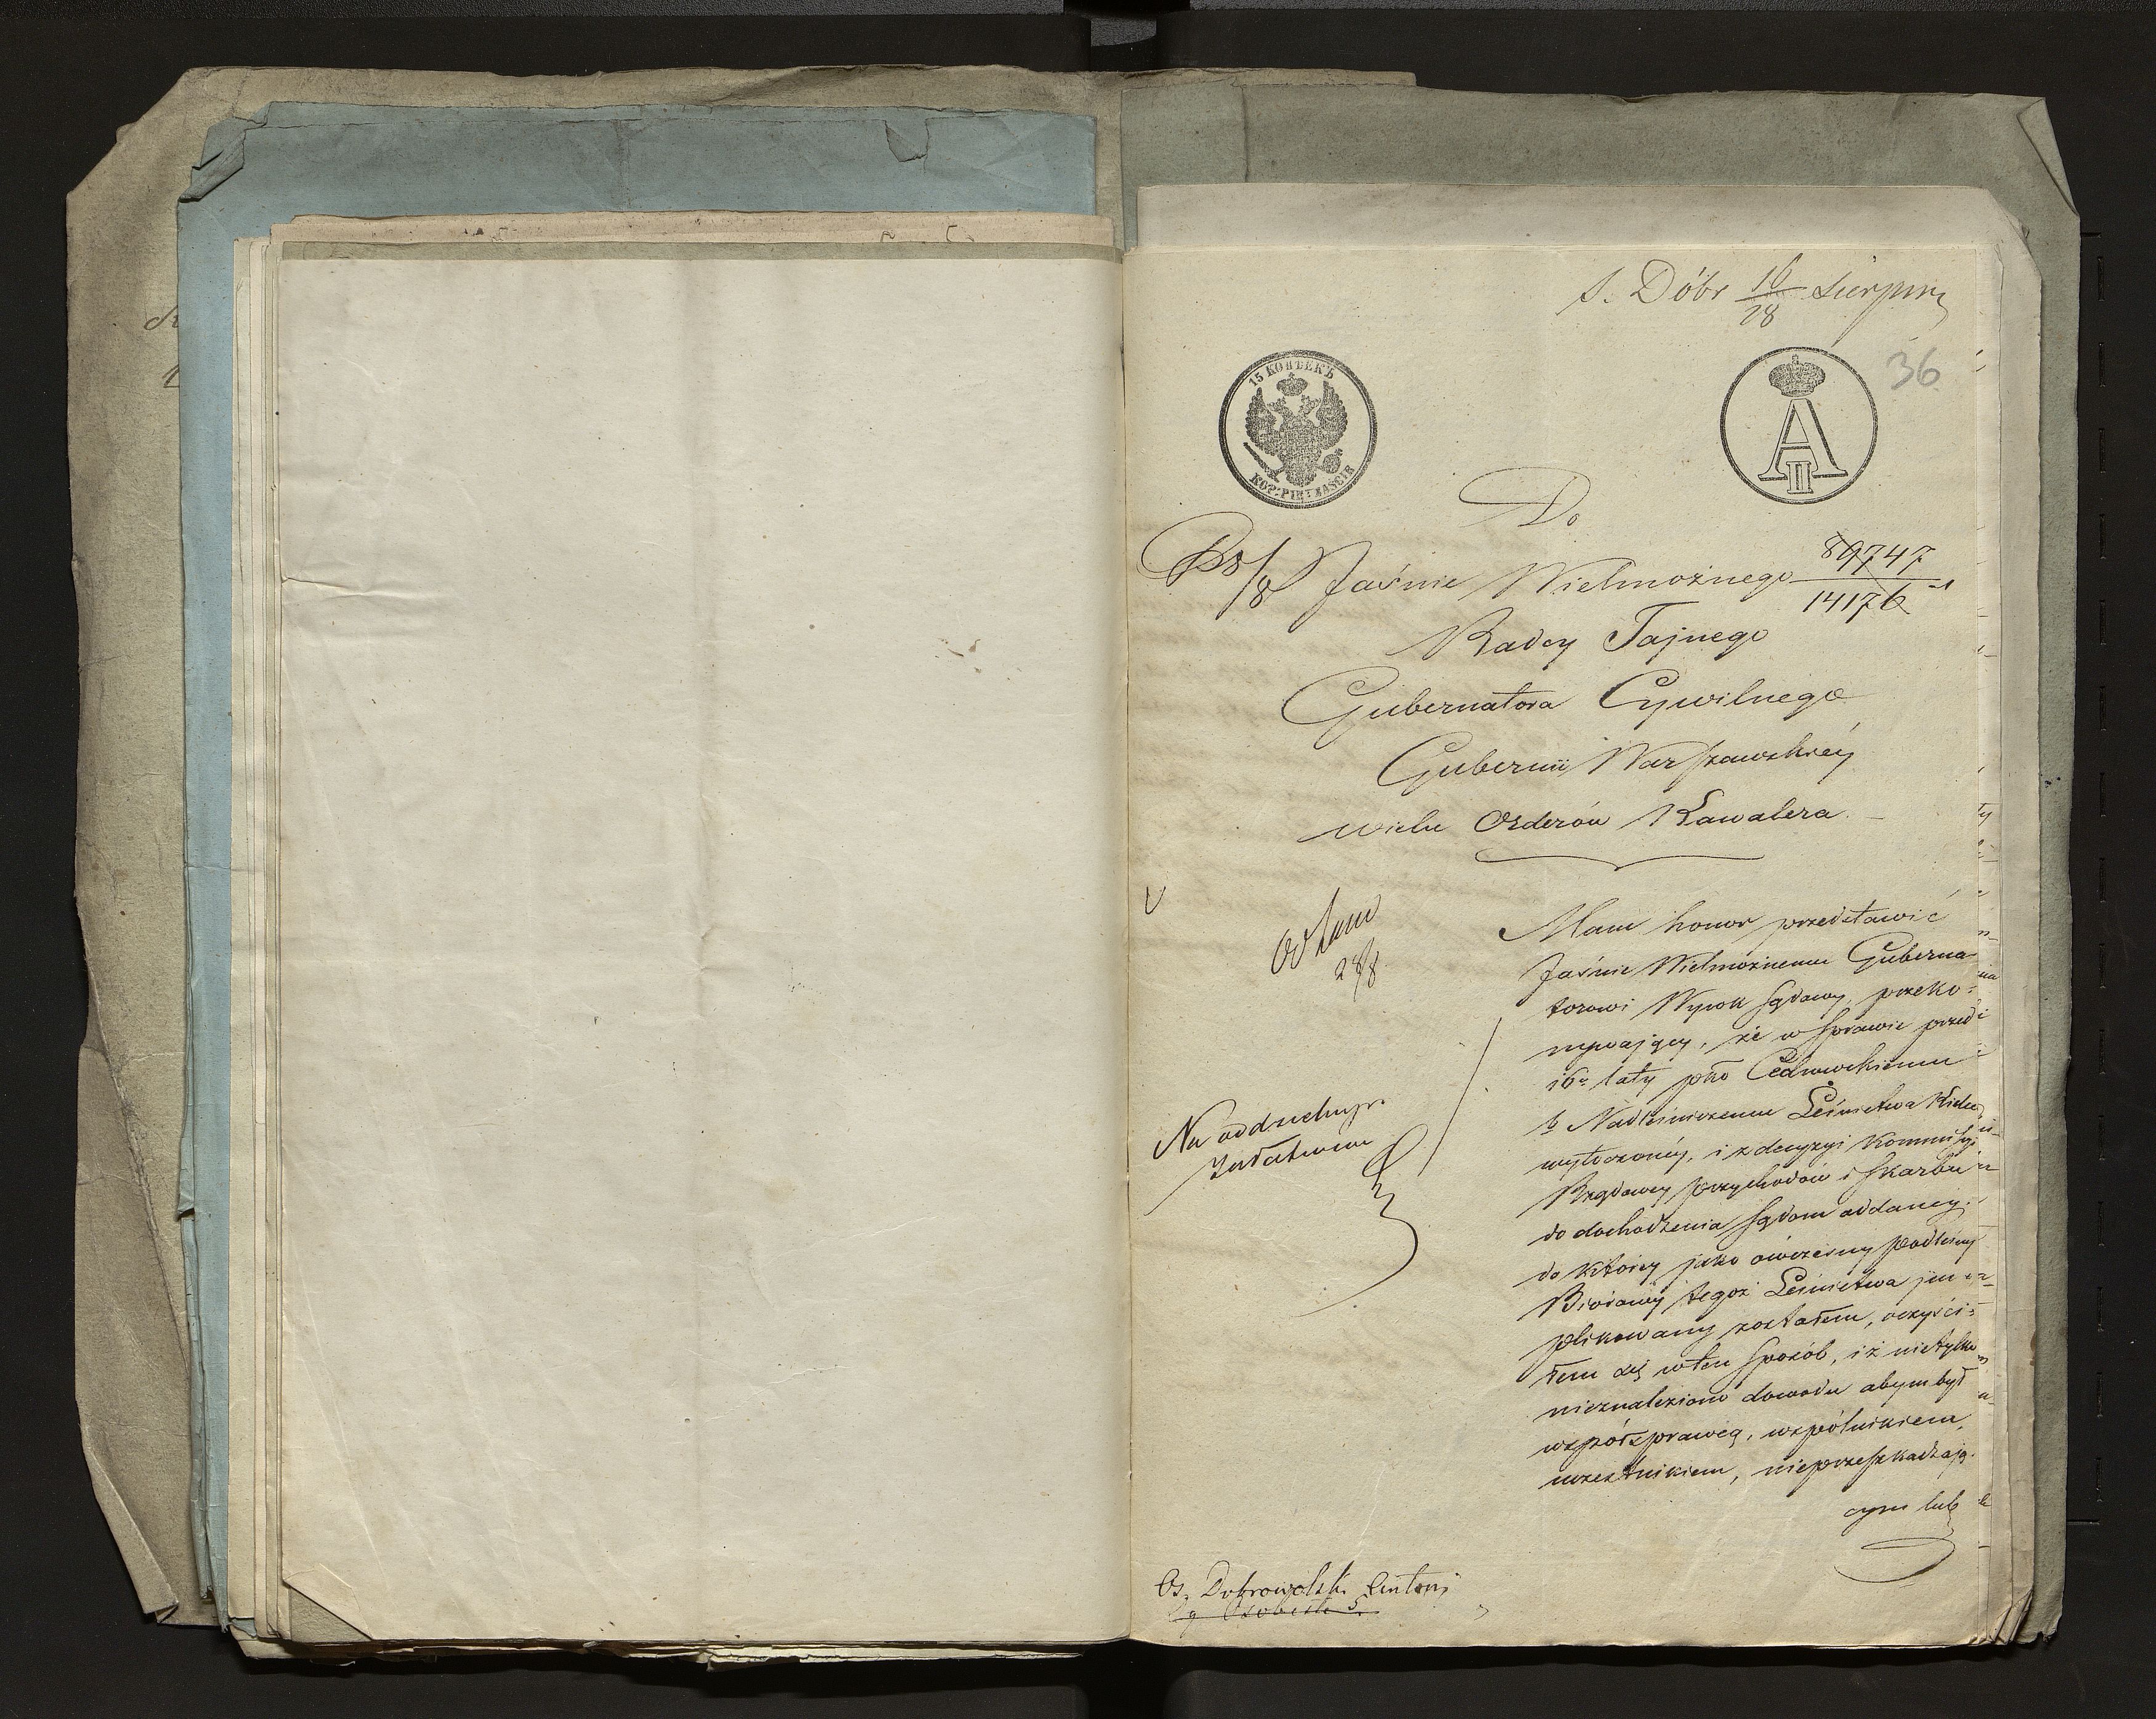 S. Dóbr 16/28 Sierpnia
36
15 КОПѢЕКЪ
KOP: PIĘTNAŚCIE
A II
Do
Jaśnie Wielmożnego 89747/14176
Radcy Tajnego
Gubernatora Cywilnego
Gubernii Warszawskiéy
wielu Orderów Kawalera.
Mam honor przedstawić
Jaśnie Wielmożnemu Guberna-
torowi Wyrok Sądowy, przeko-
nywający, że w Sprawie przed
16u laty pko Cedrowskiemu
b Nadleśniczemu Leśnictwa
wytoczonéy, i z decyzyi Kommissyi
Rządowey Przychodów i Skarbu
do dochodzenia Sądom oddaney.
do którey jako ówczesny podleśny
Biórowy tegoż Leśnictwa im-
plikowany zostałem, oczyści-
łem się w ten Sposób, iż nietylko
nieznaleziono dowodu abym był
współsprawcą, wspólnikiem,
uczestnikiem, nieprzeszkadzają-
cym lub
28/8
Na oddzielnym
Os. Dobrowolski Antoni